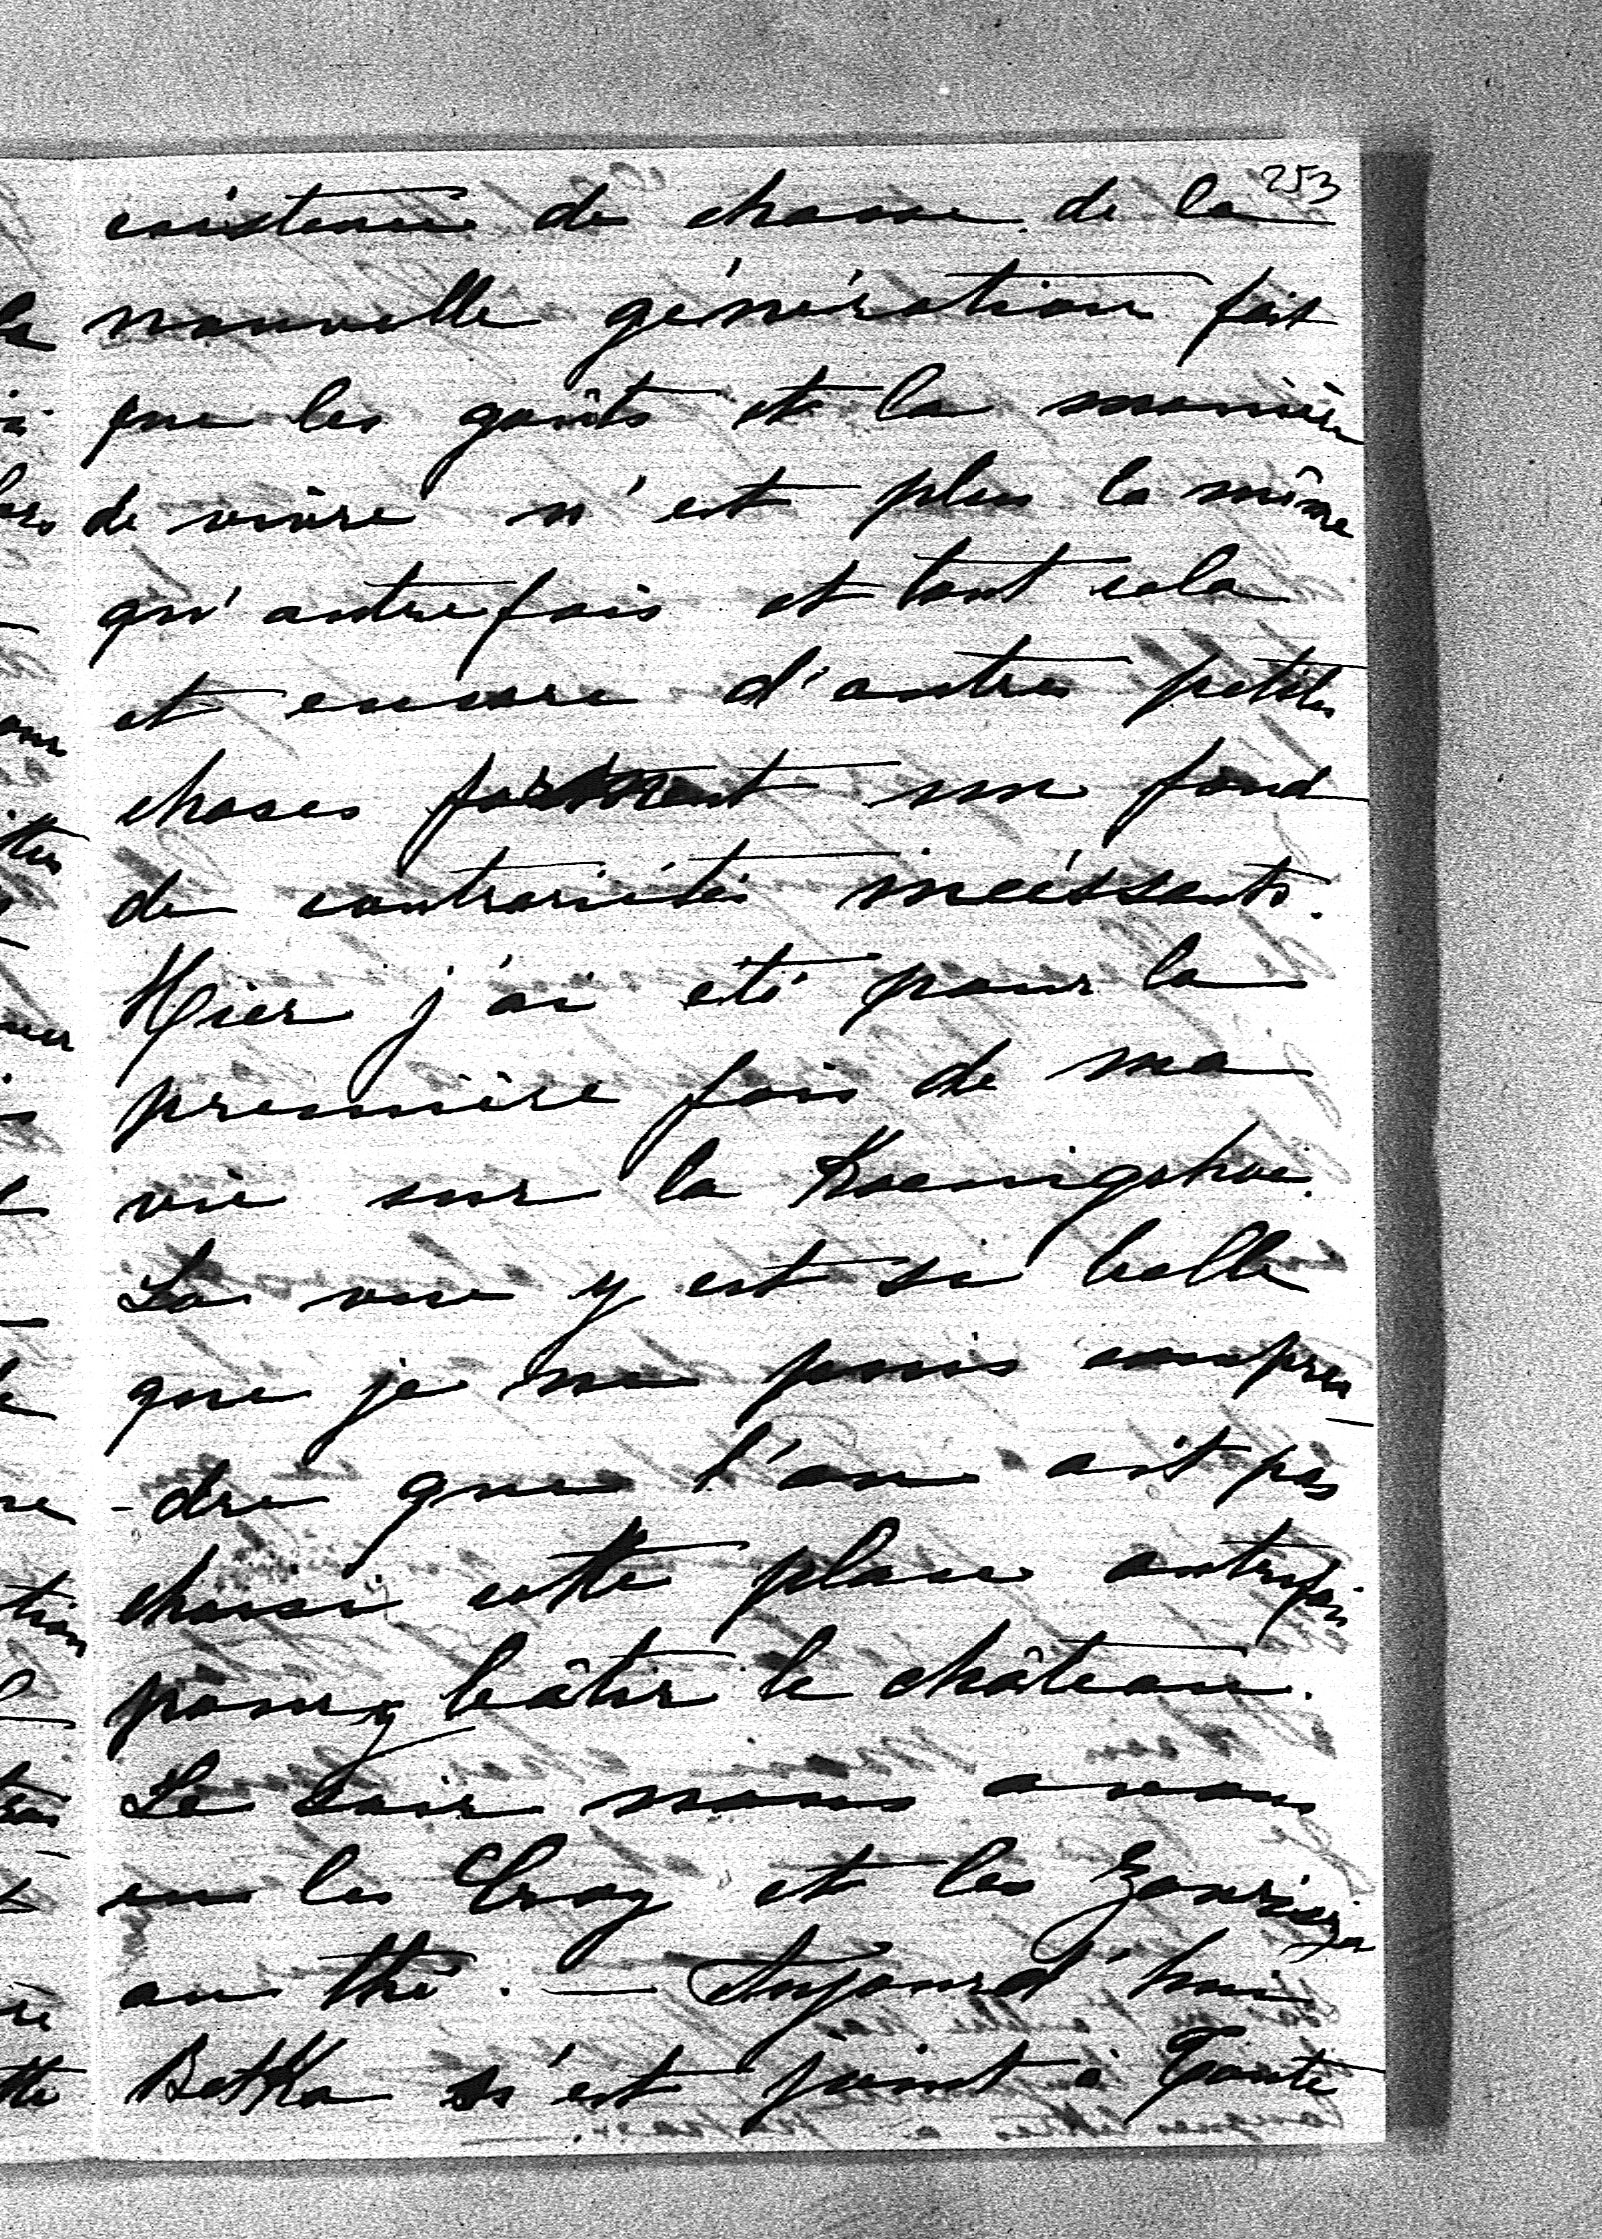 253
existence de chasse de la
nouvelle génération fait
que les goûts et la manière
de vivre n'est plus la même
qu'autrefois et tout cela
et encore d'autres petites
choses forment un fond
de contrariétés incéssants.
Hier j'ai été pour la
première fois de ma
vie sur la Koenigshoe.
La vue y est si belle
que je ne puis compren-
-dre que l'on ait pas
choisi cette place autrefois
pour y bâtir le château.
Le soir nous avons
eu les Croy et les
au thé. — Aujourd'hui
Betka s'est joint à Tante